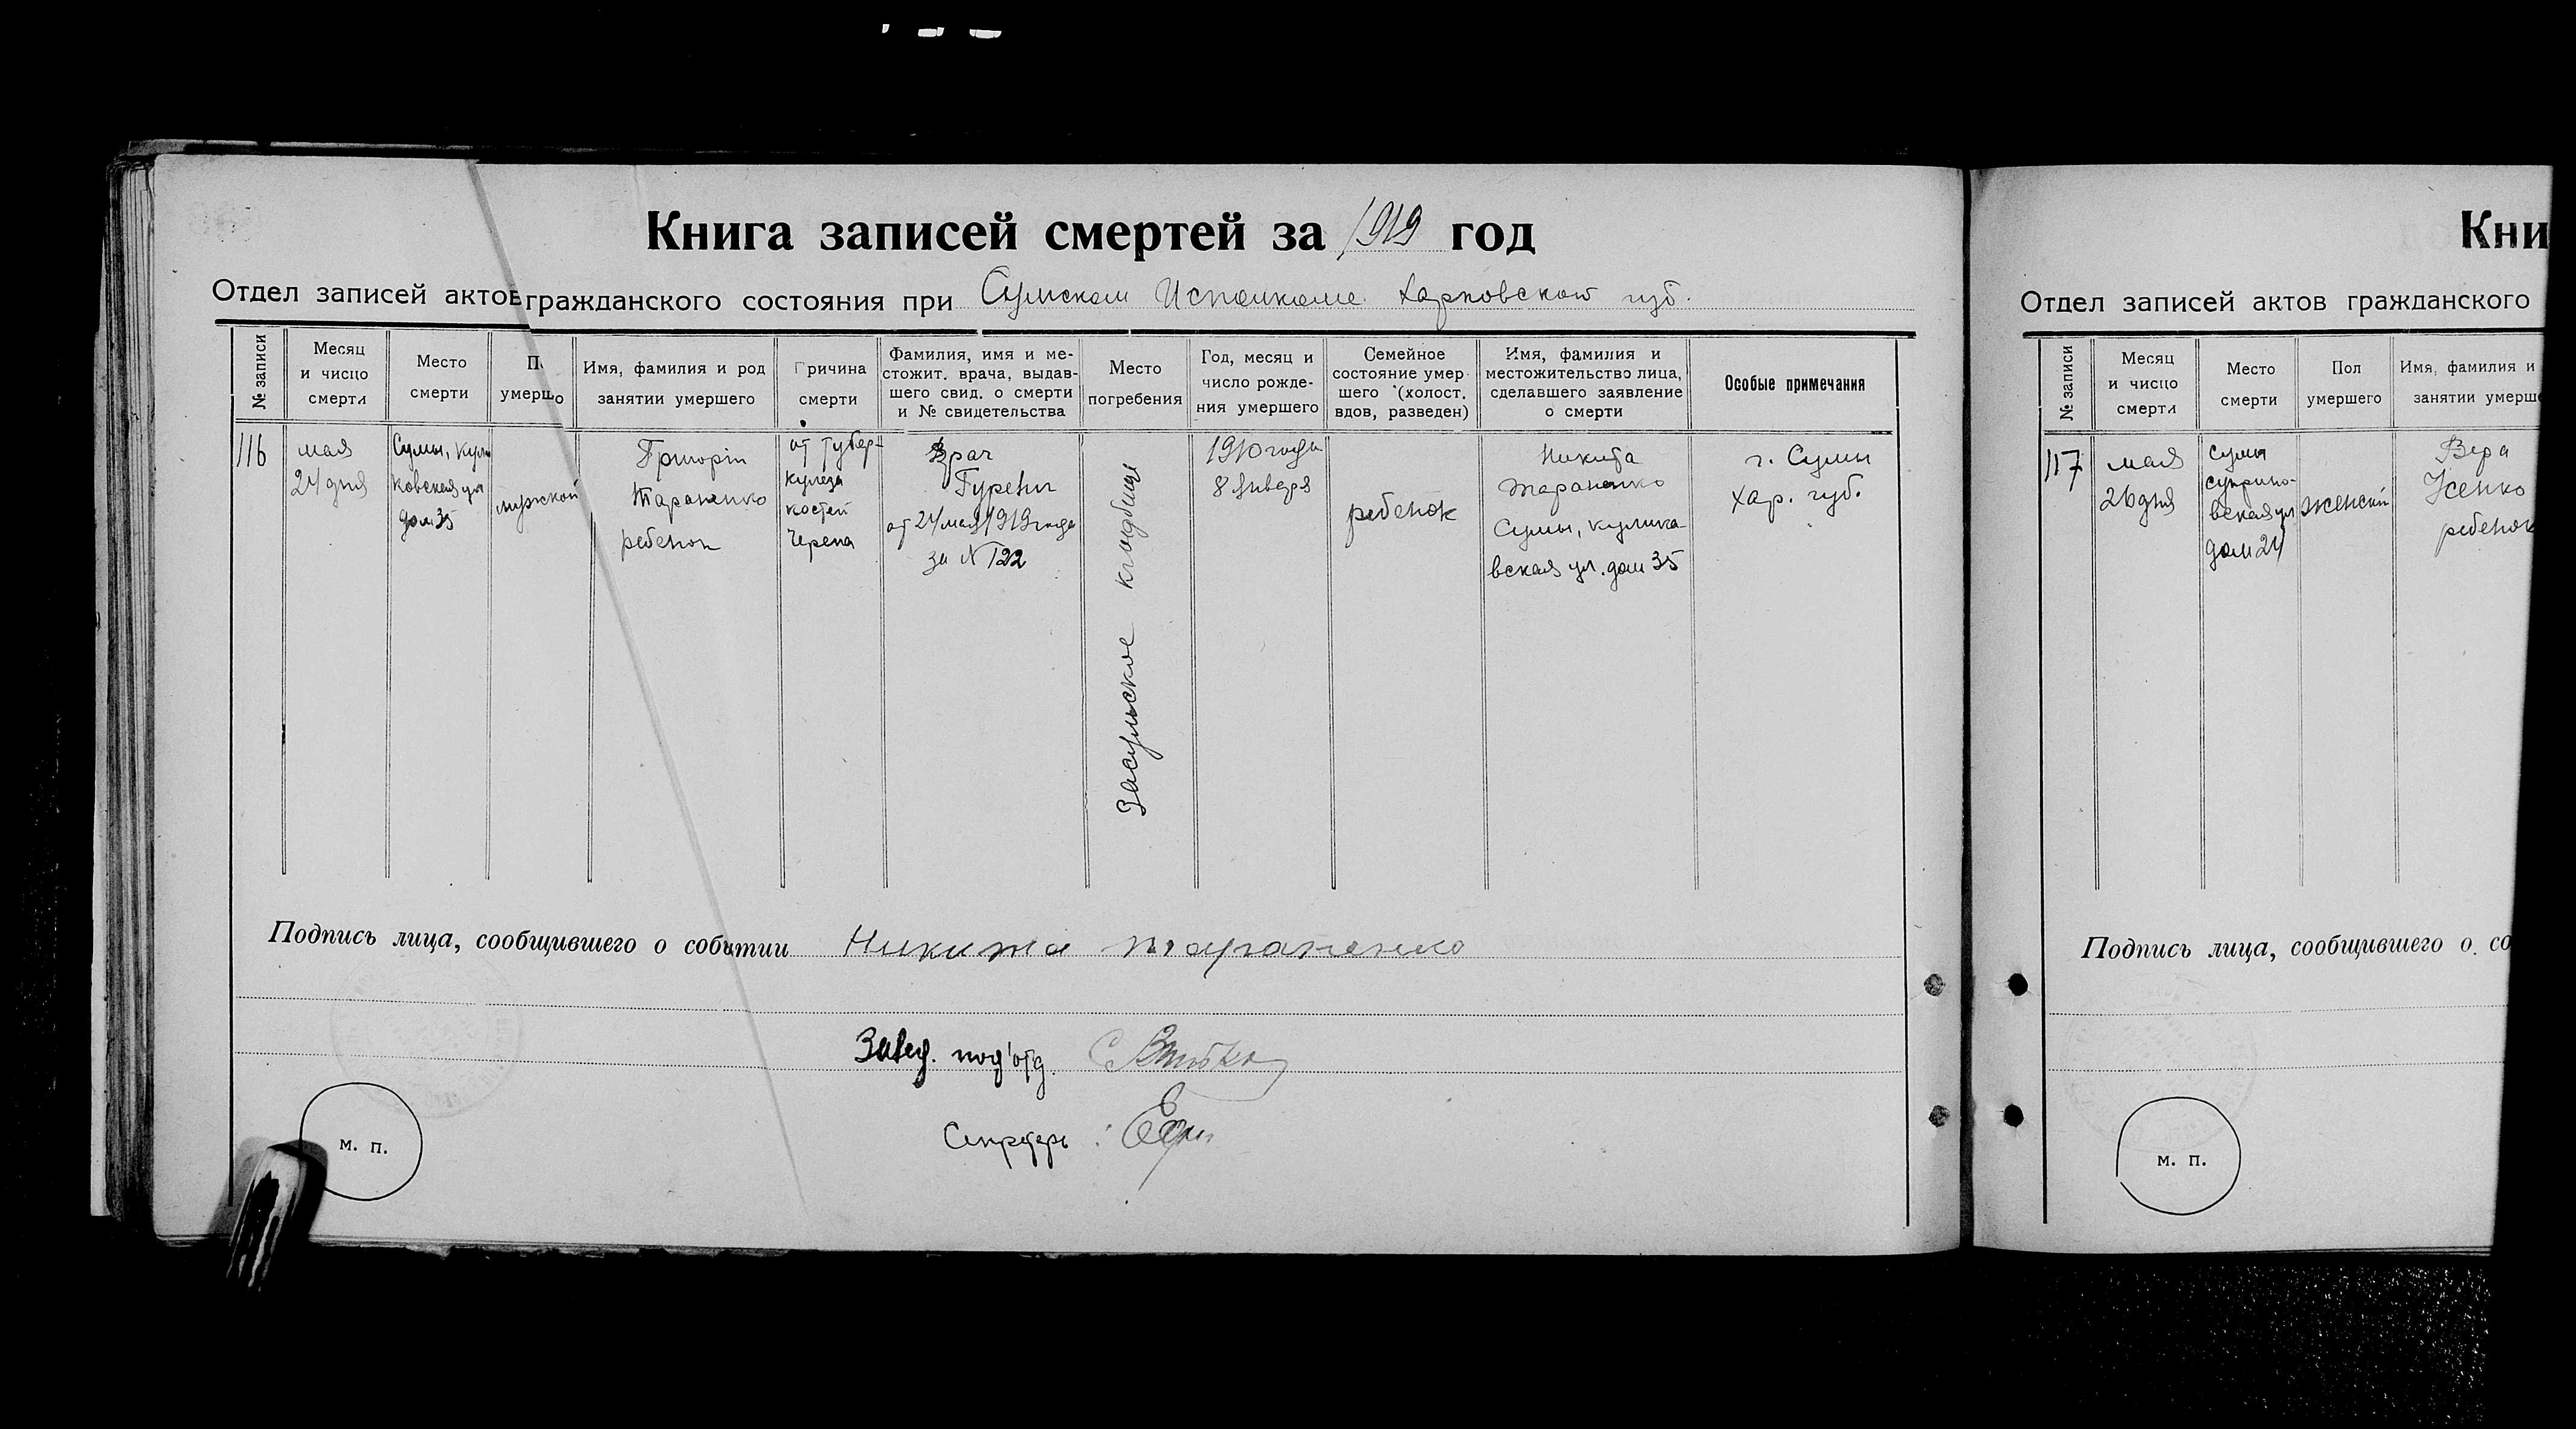 Книга записей смертей за 1919 год
Отдел записей актов гражданского состояния при Сумском Исполкоме Харьковской губ.
№ записи
Месяц
и число
смерти
Место
смерти
Пол
умершего
Имя, фамилия и род
занятии умершего
Причина
смерти
Фамилия, имя и ме-
стожит. врача, выдав-
шего свид. о смерти
и № свидетельства
Место
погребения
Год, месяц и
число рожде-
ния умершего
Семейное
состояние умер
шего (холост,
вдов, разведен)
Имя, фамилия и
местожительство лица,
сделавшего заявление
о смерти
Особые примечания
116
мая
24 дня
Сумы, кули
ковская ул
дом 35
мужской
Григорій
Тараненко
ребенок
от тубер-
кулеза
костей
черепа
Врач
Гуревич
от 24 мая 1919 года
за № 122
Засумское кладбище
1910 года
8 января
ребенок
Никита
Тараненко
Сумы, кулика
вская ул. дом 35
г. Сумы
Хар. губ.
Подпись лица, сообщившего о событии Никита Тараненко
Завед. под'отд.
Секретарь:
м. п.
Кни
Отдел записей актов гражданского
№ записи
Месяц
и число
смерти
Место
смерти
Пол
умершего
Имя, фамилия и
занятии умерше
117
мая
26 дня
Сумы
вская ул
дом 24
женский
Вера
Усенко
ребенок
Подпись лица, сообщившего о со
м. п.